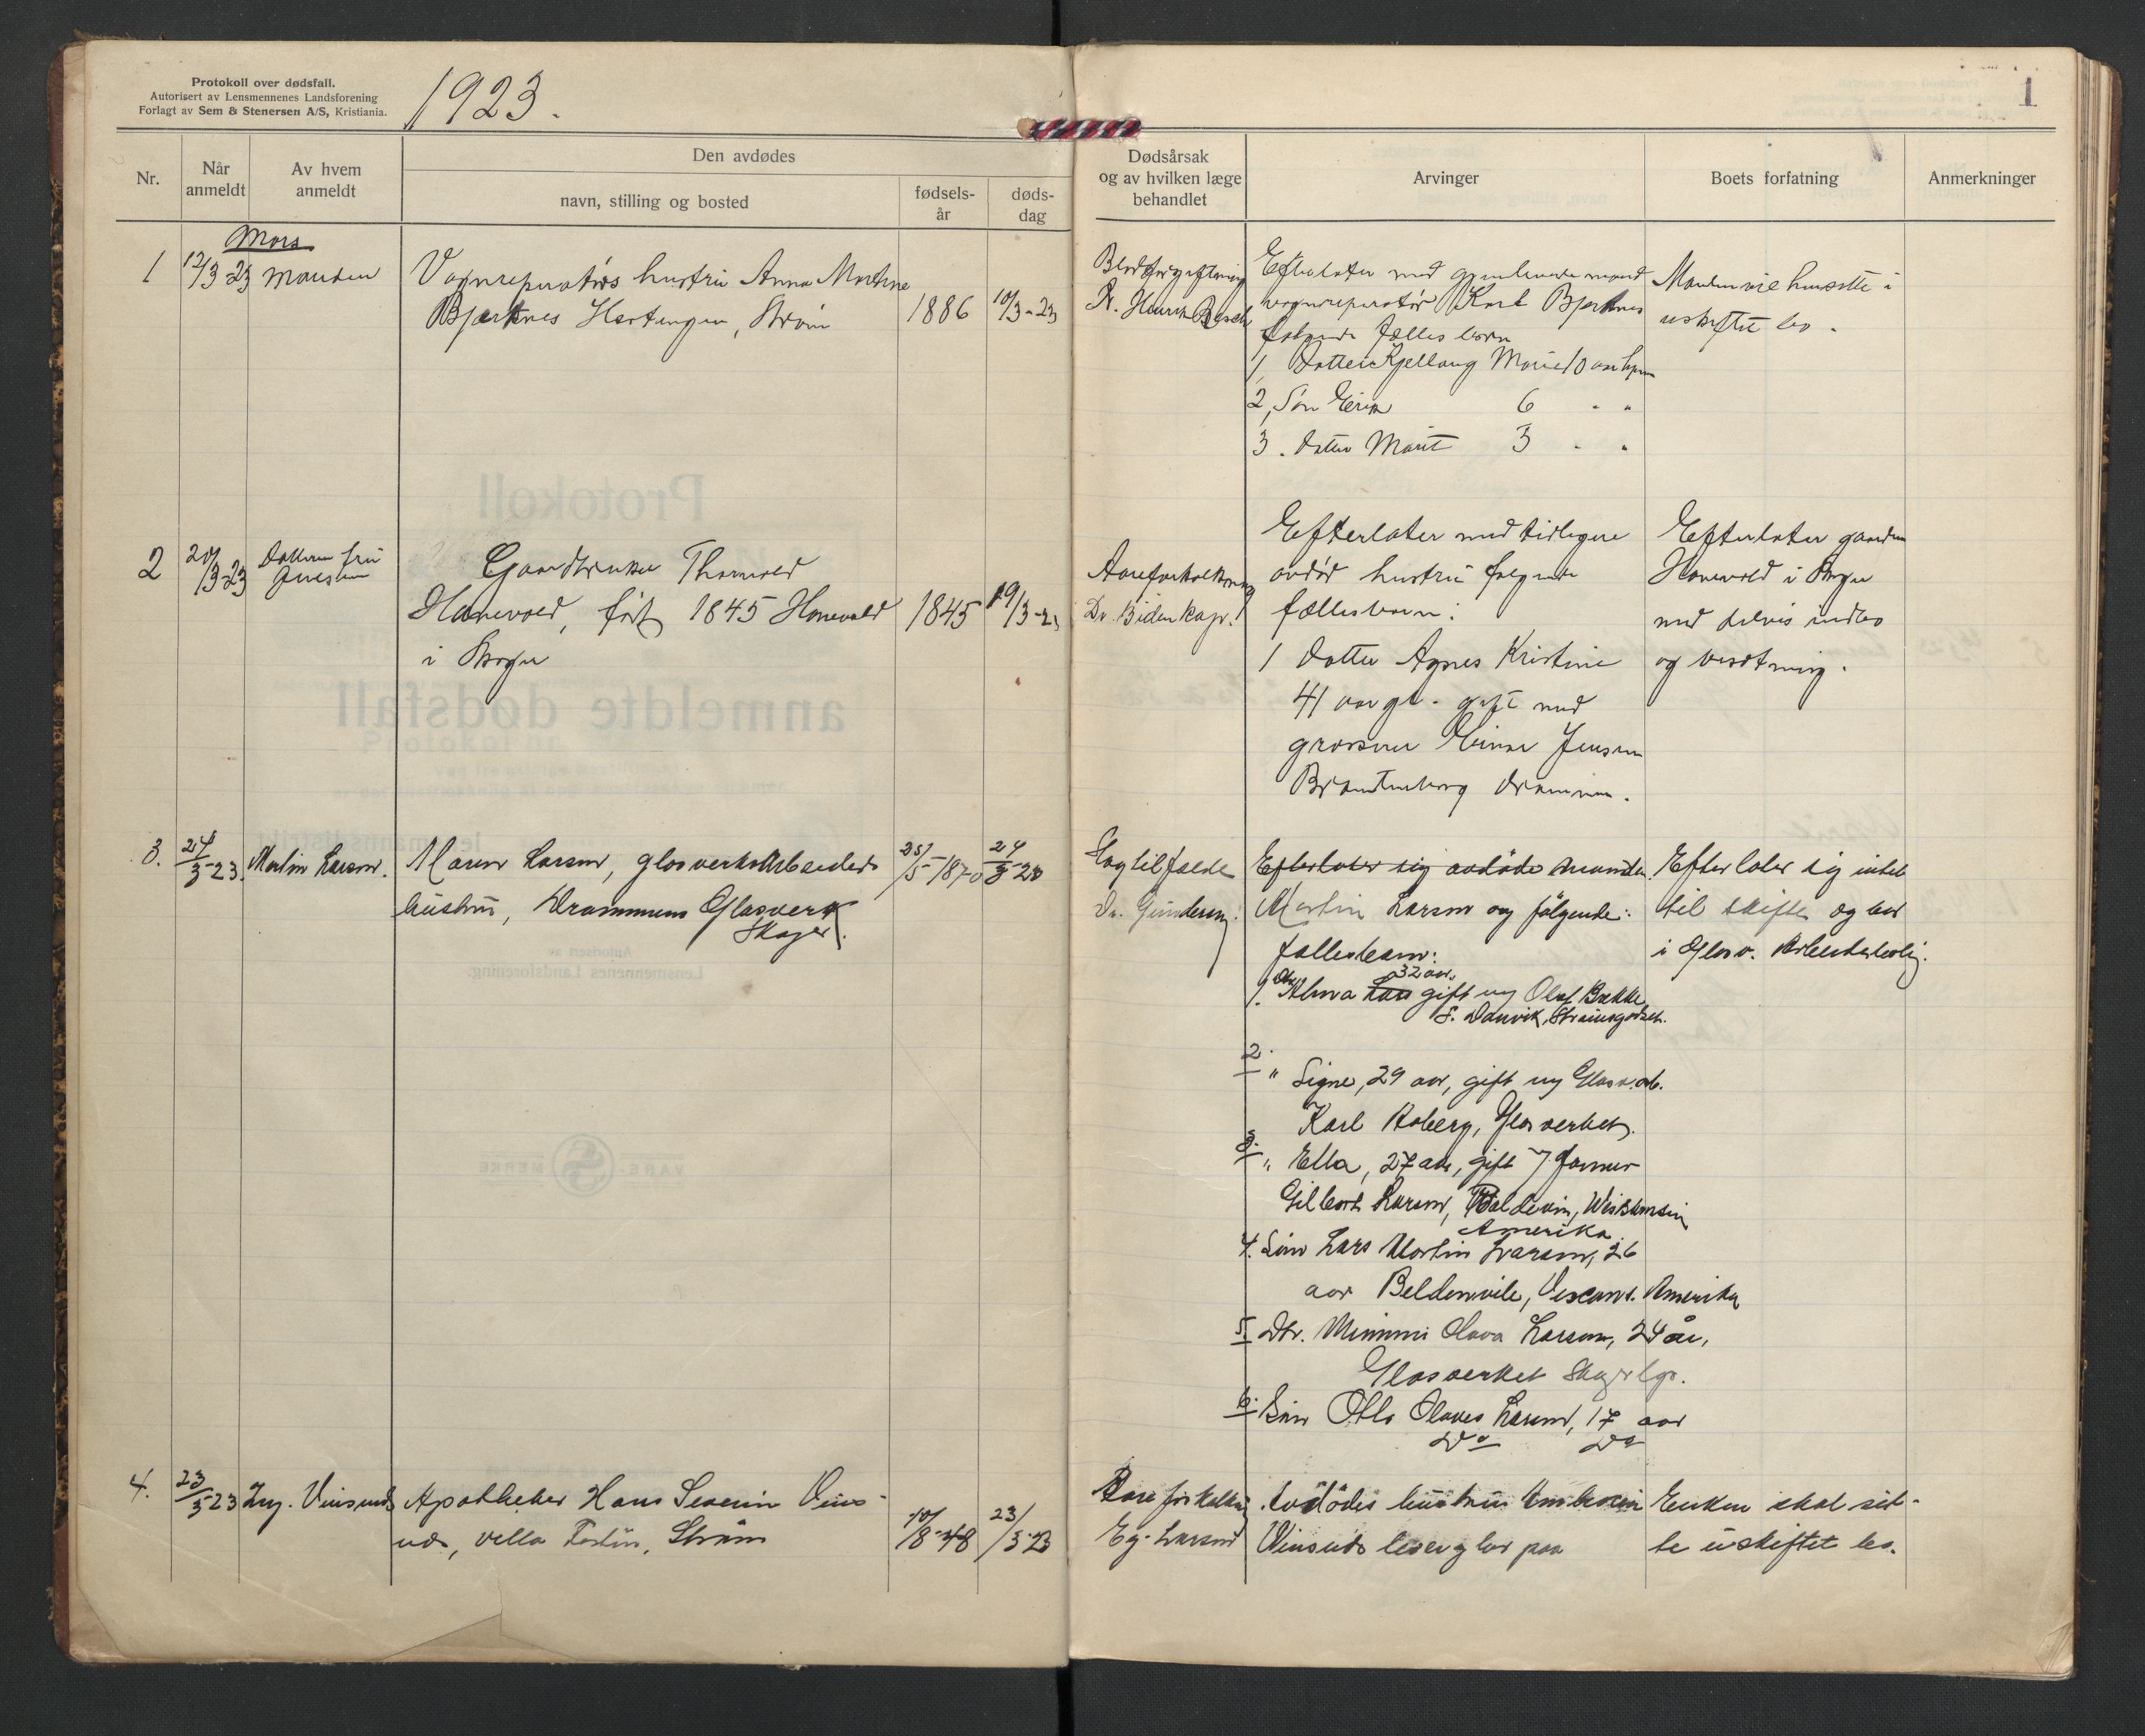 Protokoll over dødsfall.
Autorisert av Lensmennenes Landsforening
Forlagt av Sem & Stenersen A/S, Kristiania.
1923.
1
Nr.
Når anmeldt
Av hvem anmeldt
Den avdødes
navn, stilling og bosted
fødsels-år
døds-dag
Dødsårsak og av hvilken læge behandlet
Arvinger
Boets forfatning
Anmerkninger
Mars
1 12/3-23 Manden
Vognreparatørs hustru Anna Martine
Bjerknes Hertungen, Strøm
1886 10/3-23
Blodforgiftning
Efterlater med gjenlevende mand
vognreparatør Karl Bjerknes
følgende fælles børn
1, Datter Kjellaug Marie 10 aar
2, Søn Eirik 6 " "
3. Datter Marit 3 " "
Manden vil hensitte i
uskiftet bo.
2 20/3-23 Datteren fru Jensen
Gaardbruker Thorvald
Hanevold, født 1845 Hanevold
i Skoger
1845 19/3-23
Aareforkalkning
Dr. Bidenkap.
Efterlater med tidligere
avdød hustru følgende
fællesbarn:
1 Datter Agnes Kristine
41 aar gl. gift med
grosserer Einar Jensen
Brantenborg Drammen.
Efterlater gaarden
Hanevold i Skoger
med delvis indbo
og besætning.
3. 24/3-23. Martin Larsen.
Maren Larsen, glasverksarbeiders
hustru, Drammens Glasverk
Skoger.
25/5-1870 24/3-23
Slagtilfælde
Dr. Gundersen.
Efterlater sig avdøde manden
Martin Larsen og følgende:
fællesbarn:
1. Dtr. Alma 32 aar, gift m/ Olaf Bakke
S. Danvik, Strømsgodset.
2. " Signe, 29 aar, gift m/ Glasv.arb.
Karl Aaberg, Glasverket.
3. " Ella, 27 aar, gift m/ Farmer
Gilbert Larsen, Beldevin, Wisconsin
Amerika
4. Søn Lars Martin Larsen, 26
aar Beldenvile, Viscons. Amerika
5. Dtr. Mimmi Olava Larsen, 24 år,
Glasverket Skoger
6. Søn Otto Olaves Larsen, 17 aar
Do Do
Efterlater sig intet
til skifte og bor
i Glasv. Arbeiderbolig.
4. 23/3-23 Ing. Vinsnes
Apotheker Hans Severin Vins-
nes, villa Strøm
10/8-48 23/3-23
Aareforkalkn.
Eg. Larsen
Avdødes hustru
Vinsnes
Enken skal sit-
te i uskiftet bo.
Protokoll
anmeldte dødsfall
Autorisert av
Lensmennenes Landsforening.
VARE-MERKE